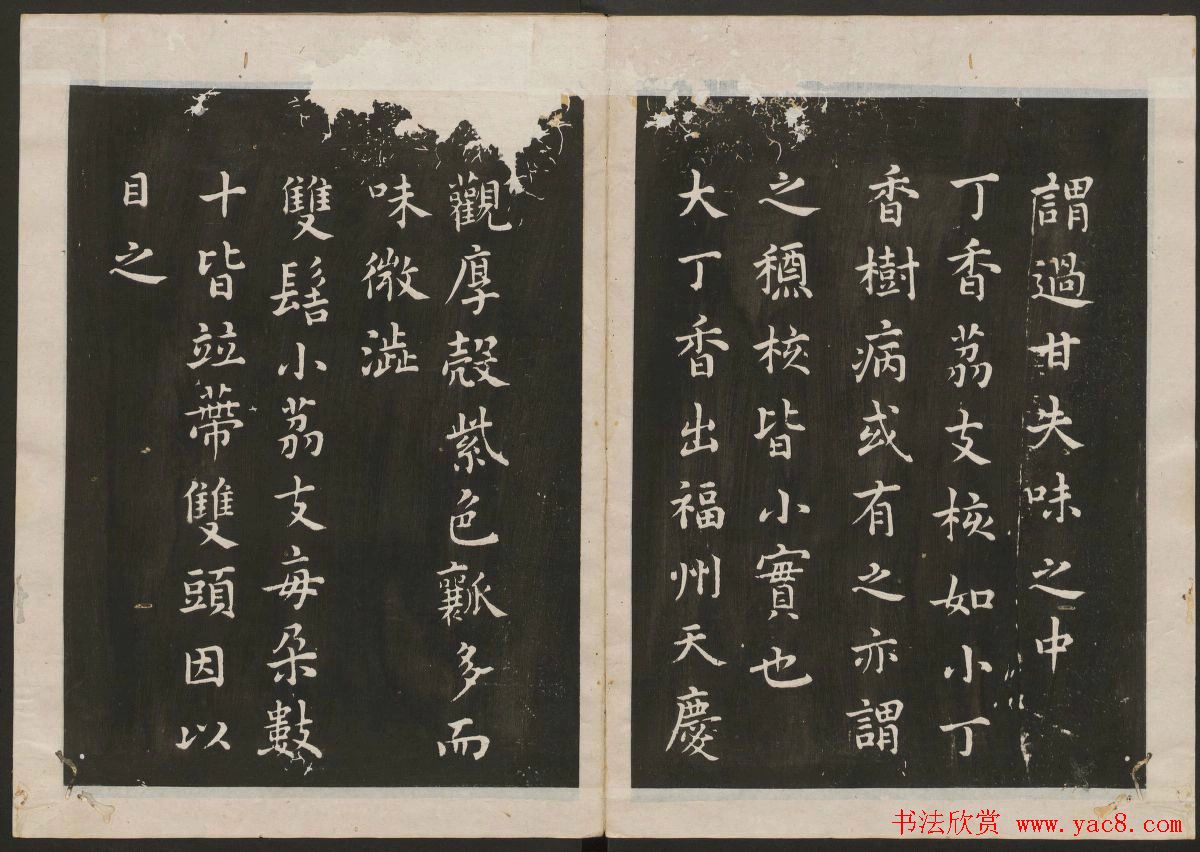 謂過甘失味之中
丁香荔支核如小丁
香樹病或有之亦謂
之穤核皆小實也
大丁香出福州天慶
觀厚殼紫色瓤多而
味微澁
雙髻小荔支每朶數
十皆竝蔕雙頭因以
目之
书法欣赏 www.yac8.com